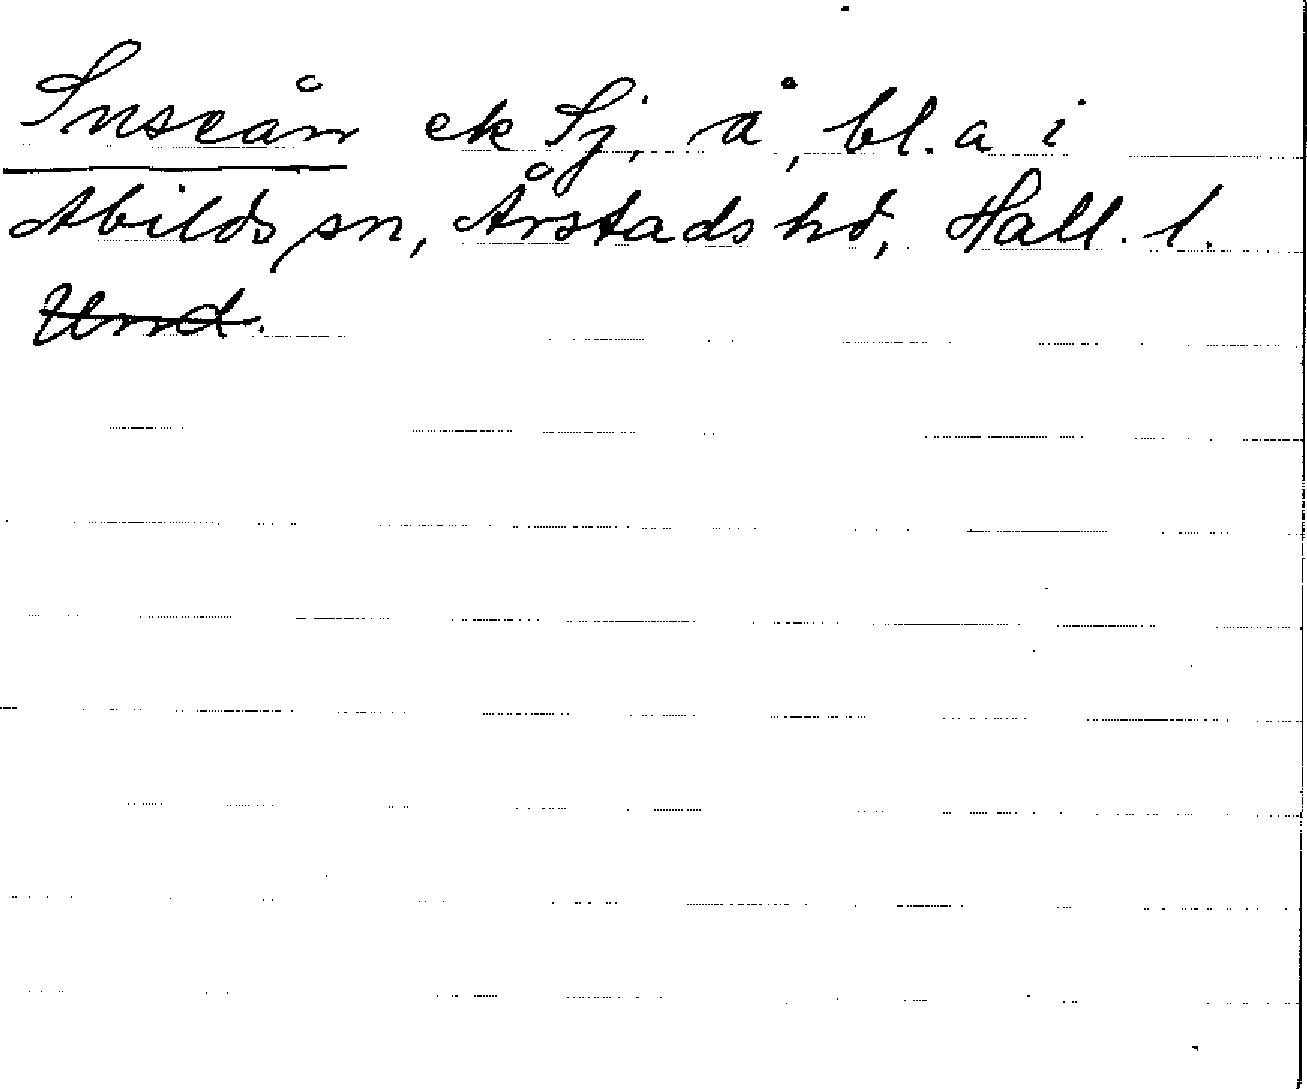 Suseån ek Sj, å, bl. a i
Abilds sn, Årstads hd, Hall. l.
Und.